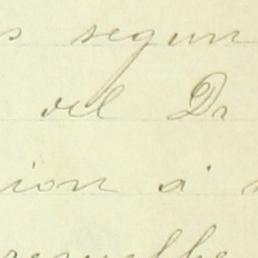 s segun
del Dr
ion á